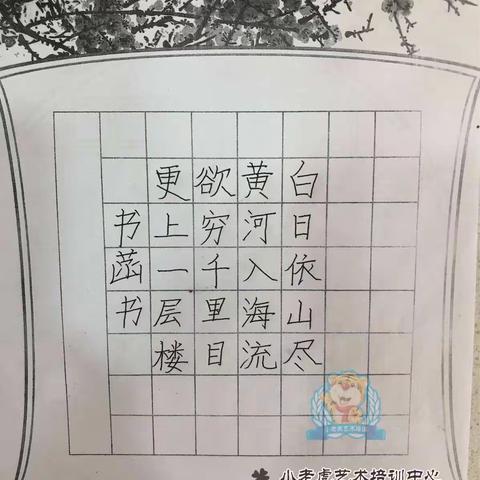 白日依山尽
黄河入海流
欲穷千里目
更上一层楼
书菡书
小老虎艺术培训
小老虎艺术培训中心